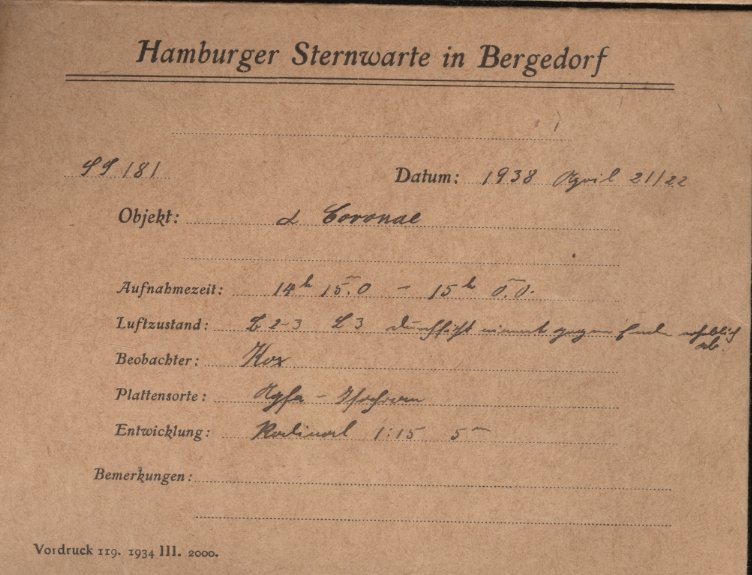 Hamburger Sternwarte in Bergedorf
SS 181 Datum: 1938 April 21/22
Objekt: α Coronae
Aufnahmezeit: 14h 15m.0 – 15h 0m.0.
Luftzustand: 2-3 L 3 Durchsicht nimmt gegen Ende ab.
Beobachter: Kox
Plattensorte: Agfa – Isochrom
Entwicklung: Rodinal 1:15 5m
Bemerkungen:
Vordruck 119. 1934 III. 2000.